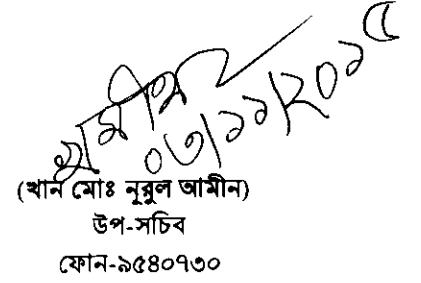 ০৩/১১/২০১৫
(খান মোঃ নূরুল আমীন)
উপ-সচিব
ফোন-৯৫৪০৭৩০